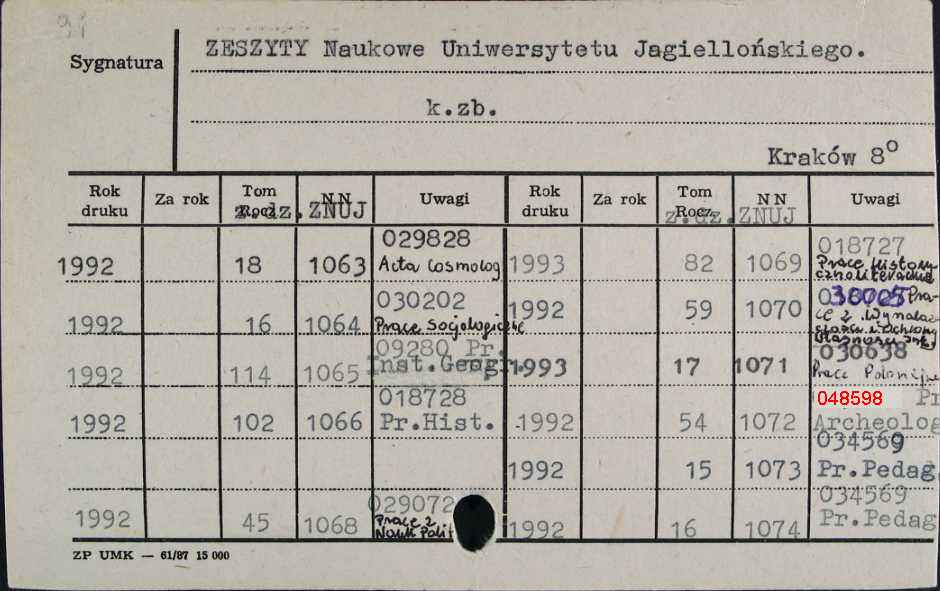 91
Sygnatura
ZESZYTY Naukowe Uniwersytetu Jagiellońskiego.
k.zb.
Kraków 8°
Rok druku Za rok Tom Rocz. NN Uwagi Rok druku Za rok Tom Rocz. NN Uwagi
z.dz. ZNUJ z.dz. ZNUJ
1992 18 1063 029828 Acta Cosmolog
1993 82 1069 018727 Prace History cznoliterackie
1992 16 1064 030202 Prace Socjologiczne
1992 59 1070 Pra-
ce z Wynalaz
czości i Ochrony
Własności Int.
1992 114 1065 09280 Pr. Inst.Geogr.
1993 17 1071 030638 Prace Polonijne
1992 102 1066 018728 Pr.Hist.
1992 54 1072 048598 Pr Archeolog
1992 15 1073 034569 Pr.Pedag
1992 45 1068 029072 Prace z Nauk Polit
1992 16 1074 034569 Pr.Pedag
ZP UMK — 61/87 15 000